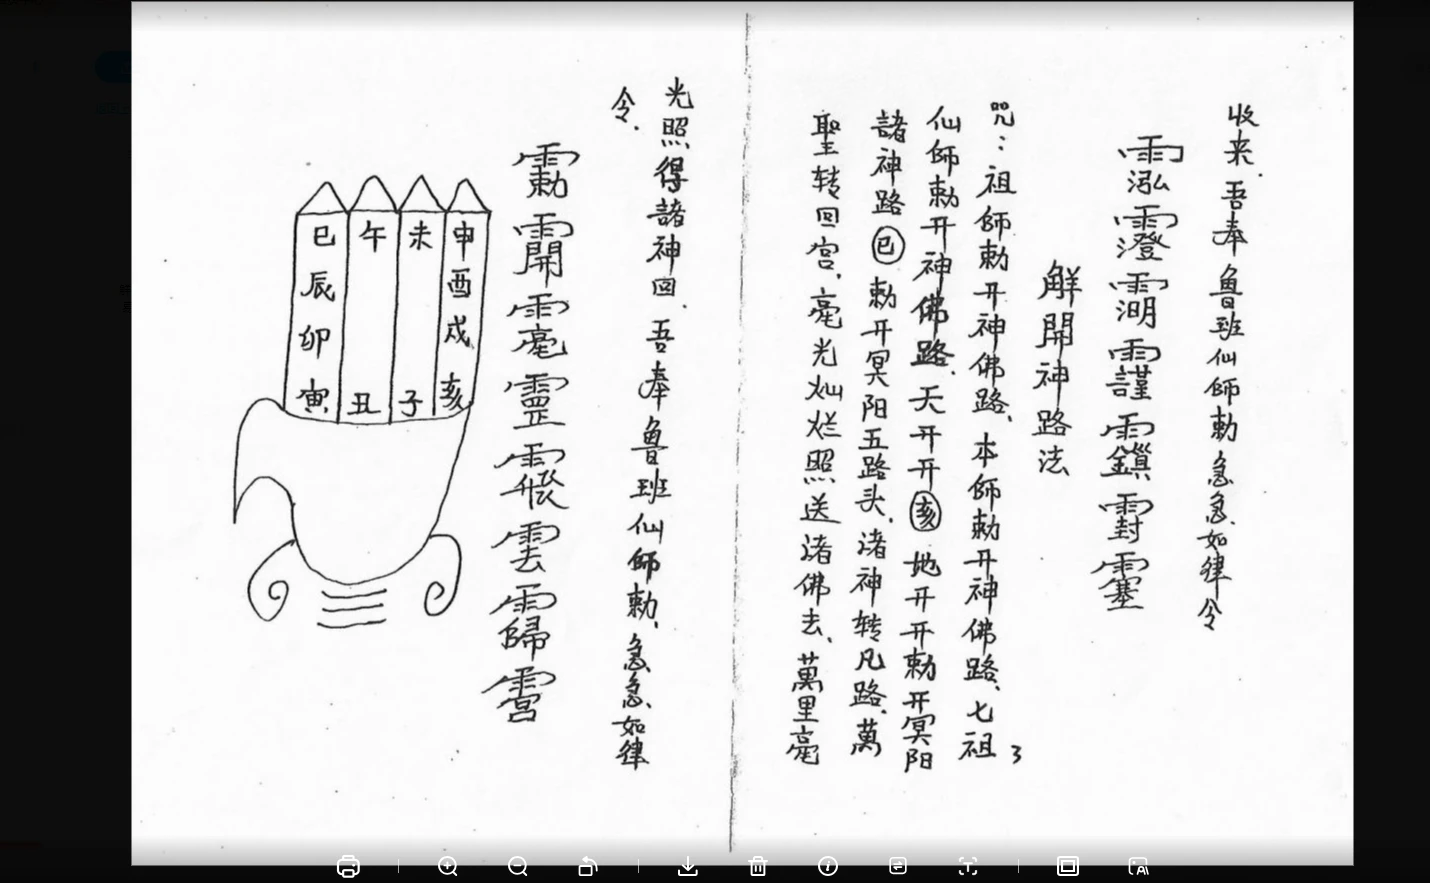 收来.吾奉鲁班仙師勅急急.如律令
解開神路法
咒:祖師勅开神佛路、本師勅开神佛路、七祖
仙師勅开神佛路.天开开亥地开开勅开冥阳
諸神路巳勅开冥阳五路头.渚神转凡路.萬
聖转回宫.毫光灿烂照送渚佛去、萬里毫
3
光照得諸神回.吾奉鲁班仙師勅、急急、如律
令.
巳 午 未 申
辰 酉
卯 戍
寅 丑 子 亥